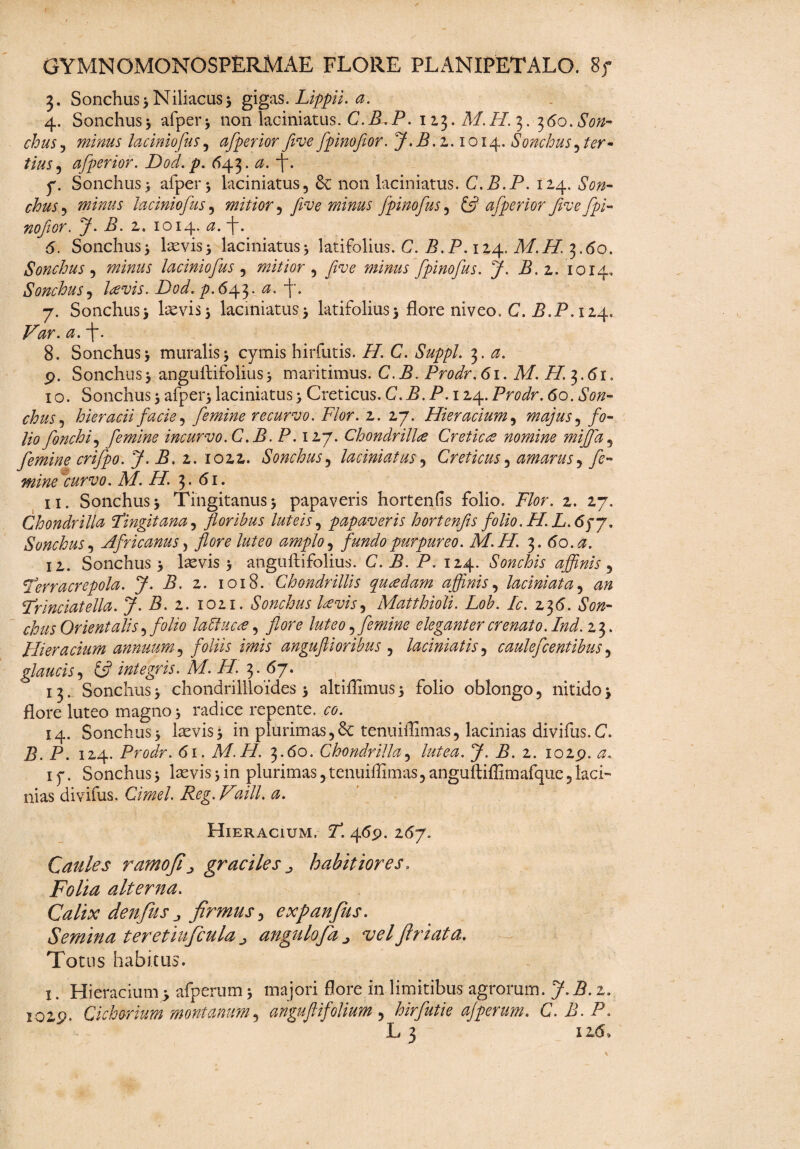 GYMNOMONOSPERMAE FLORE PLANIPETALO. 85
3. Sonchus; Niliacus; gigas. Lippii. a.
4. Sonchus; aſper; non laciniatus. C.B.P. 123. M.H. 3. 360. Son-
chus, minus lacinioſus, aſperior ſive ſpinoſior. J.B. 2. 1014. Sonchus, ter-
tius, aſperior. Dod. p. 643. a. †.
5. Sonchus; aſper; laciniatus, & non laciniatus. C.B.P. 124. Son-
chus, minus lacinioſus, mitior, ſive minus ſpinoſus, & aſperior ſive ſpi-
noſior. J. B. 2. 1014. a. †.
6. Sonchus; lævis; laciniatus; latifolius. C. B.P. 124. M.H. 3.60.
Sonchus, minus lacinioſus, mitior, ſive minus ſpinoſus. J. B. 2. 1014.
Sonchus, lævis. Dod. p. 643. a. †.
7. Sonchus; lævis; laciniatus; latifolius; flore niveo. C. B.P. 124.
Var. a. †.
8. Sonchus; muralis; cymis hirſutis. H. C. Suppl. 3. a.
9. Sonchus; anguſtifolius; maritimus. C.B. Prodr. 61. M. H. 3.61.
10. Sonchus; aſper; laciniatus; Creticus. C. B. P. 124. Prodr. 60. Son-
chus, hieracii facie, ſemine recurvo. Flor. 2. 27. Hieracium, majus, fo-
lio ſonchi, ſemine incurvo. C.B. P. 127. Chondrillæ Creticæ nomine miſſa,
ſemine criſpo. J. B. 2. 1022. Sonchus, laciniatus, Creticus, amarus, ſe-
mine curvo. M. H. 3. 61.
11. Sonchus; Tingitanus; papaveris hortenſis folio. Flor. 2. 27.
Chondrilla Tingitana, floribus luteis, papaveris hortenſis folio. H. L. 657.
Sonchus, Africanus, flore luteo amplo, fundo purpureo. M.H. 3. 60. a.
12. Sonchus; lævis; anguſtifolius. C. B. P. 124. Sonchis affinis,
Terracrepola. J. B. 2. 1018. Chondrillis quædam affinis, laciniata, an
Trinciatella. J. B. 2. 1021. Sonchus lævis, Matthioli. Lob. Ic. 236. Son-
chus Orientalis, folio lactucæ, flore luteo, ſemine eleganter crenato. Ind. 23.
Hieracium annuum, foliis imis anguſtioribus, laciniatis, cauleſcentibus,
glaucis, & integris. M. H. 3. 67.
13. Sonchus; chondrillloïdes; altiſſimus; folio oblongo, nitido;
flore luteo magno; radice repente. co.
14. Sonchus; lævis; in plurimas, & tenuiſſimas, lacinias diviſus. C.
B. P. 124. Prodr. 61. M.H. 3.60. Chondrilla, lutea. J. B. 2. 1029. a.
15. Sonchus; lævis; in plurimas, tenuiſſimas, anguſtiſſimaſque, laci-
nias diviſus. Cimel. Reg. Vaill. a.
HIERACIUM. T. 469. 267.
Caules ramoſi, graciles, habitiores.
Folia alterna.
Calix denſus, firmus, expanſus.
Semina teretiuſcula, anguloſa, vel ſtriata.
Totus habitus.
1. Hieracium; aſperum; majori flore in limitibus agrorum. J.B. 2.
1029. Cichorium montanum, anguſtifolium, hirſutie aſperum. C. B. P.
L 3 126.